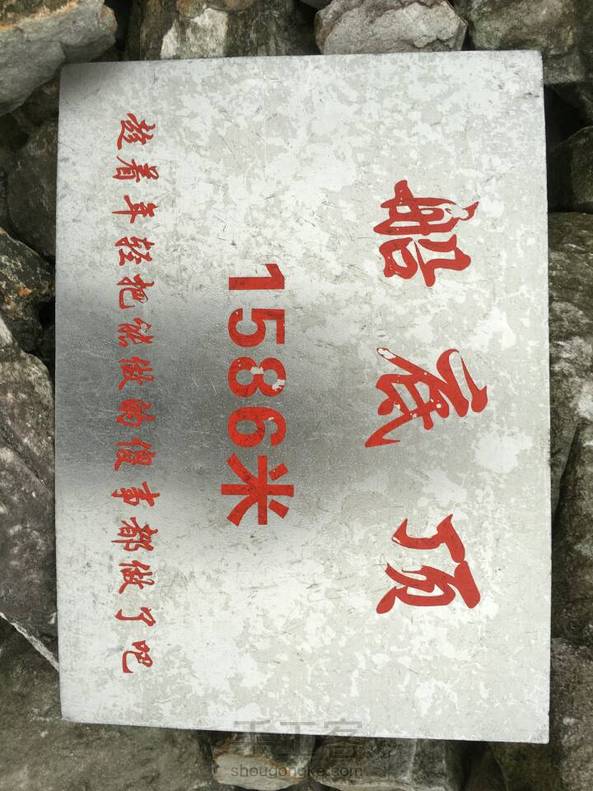 船底顶
1586米
趁着年轻把能做的傻事都做了吧
手工客
shougongke.com